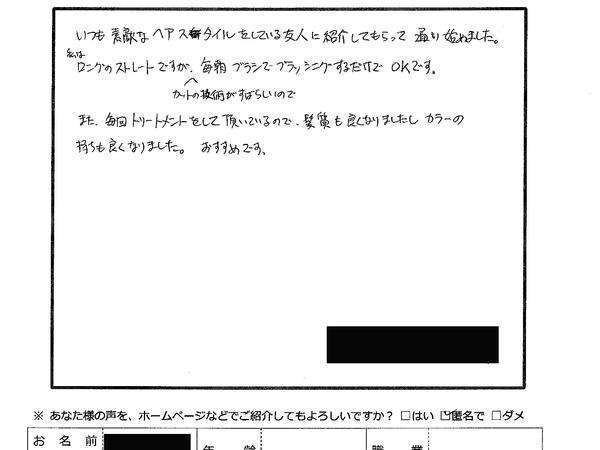 いつも素敵なヘアスタイルをしている友人に紹介してもらって通り始めました。
私は
ロングのストレートですが、毎朝ブラシでブラッシングするだけでOKです。
カットの技術がすばらしいので
また、毎回トリートメントをして頂いているので、髪質も良くなりましたし カラーの
持ちも良くなりました。 おすすめです。
※ あなた様の声を、ホームページなどでご紹介してもよろしいですか？ □はい ☑匿名で □ダメ
お名前
年 齢
職 業